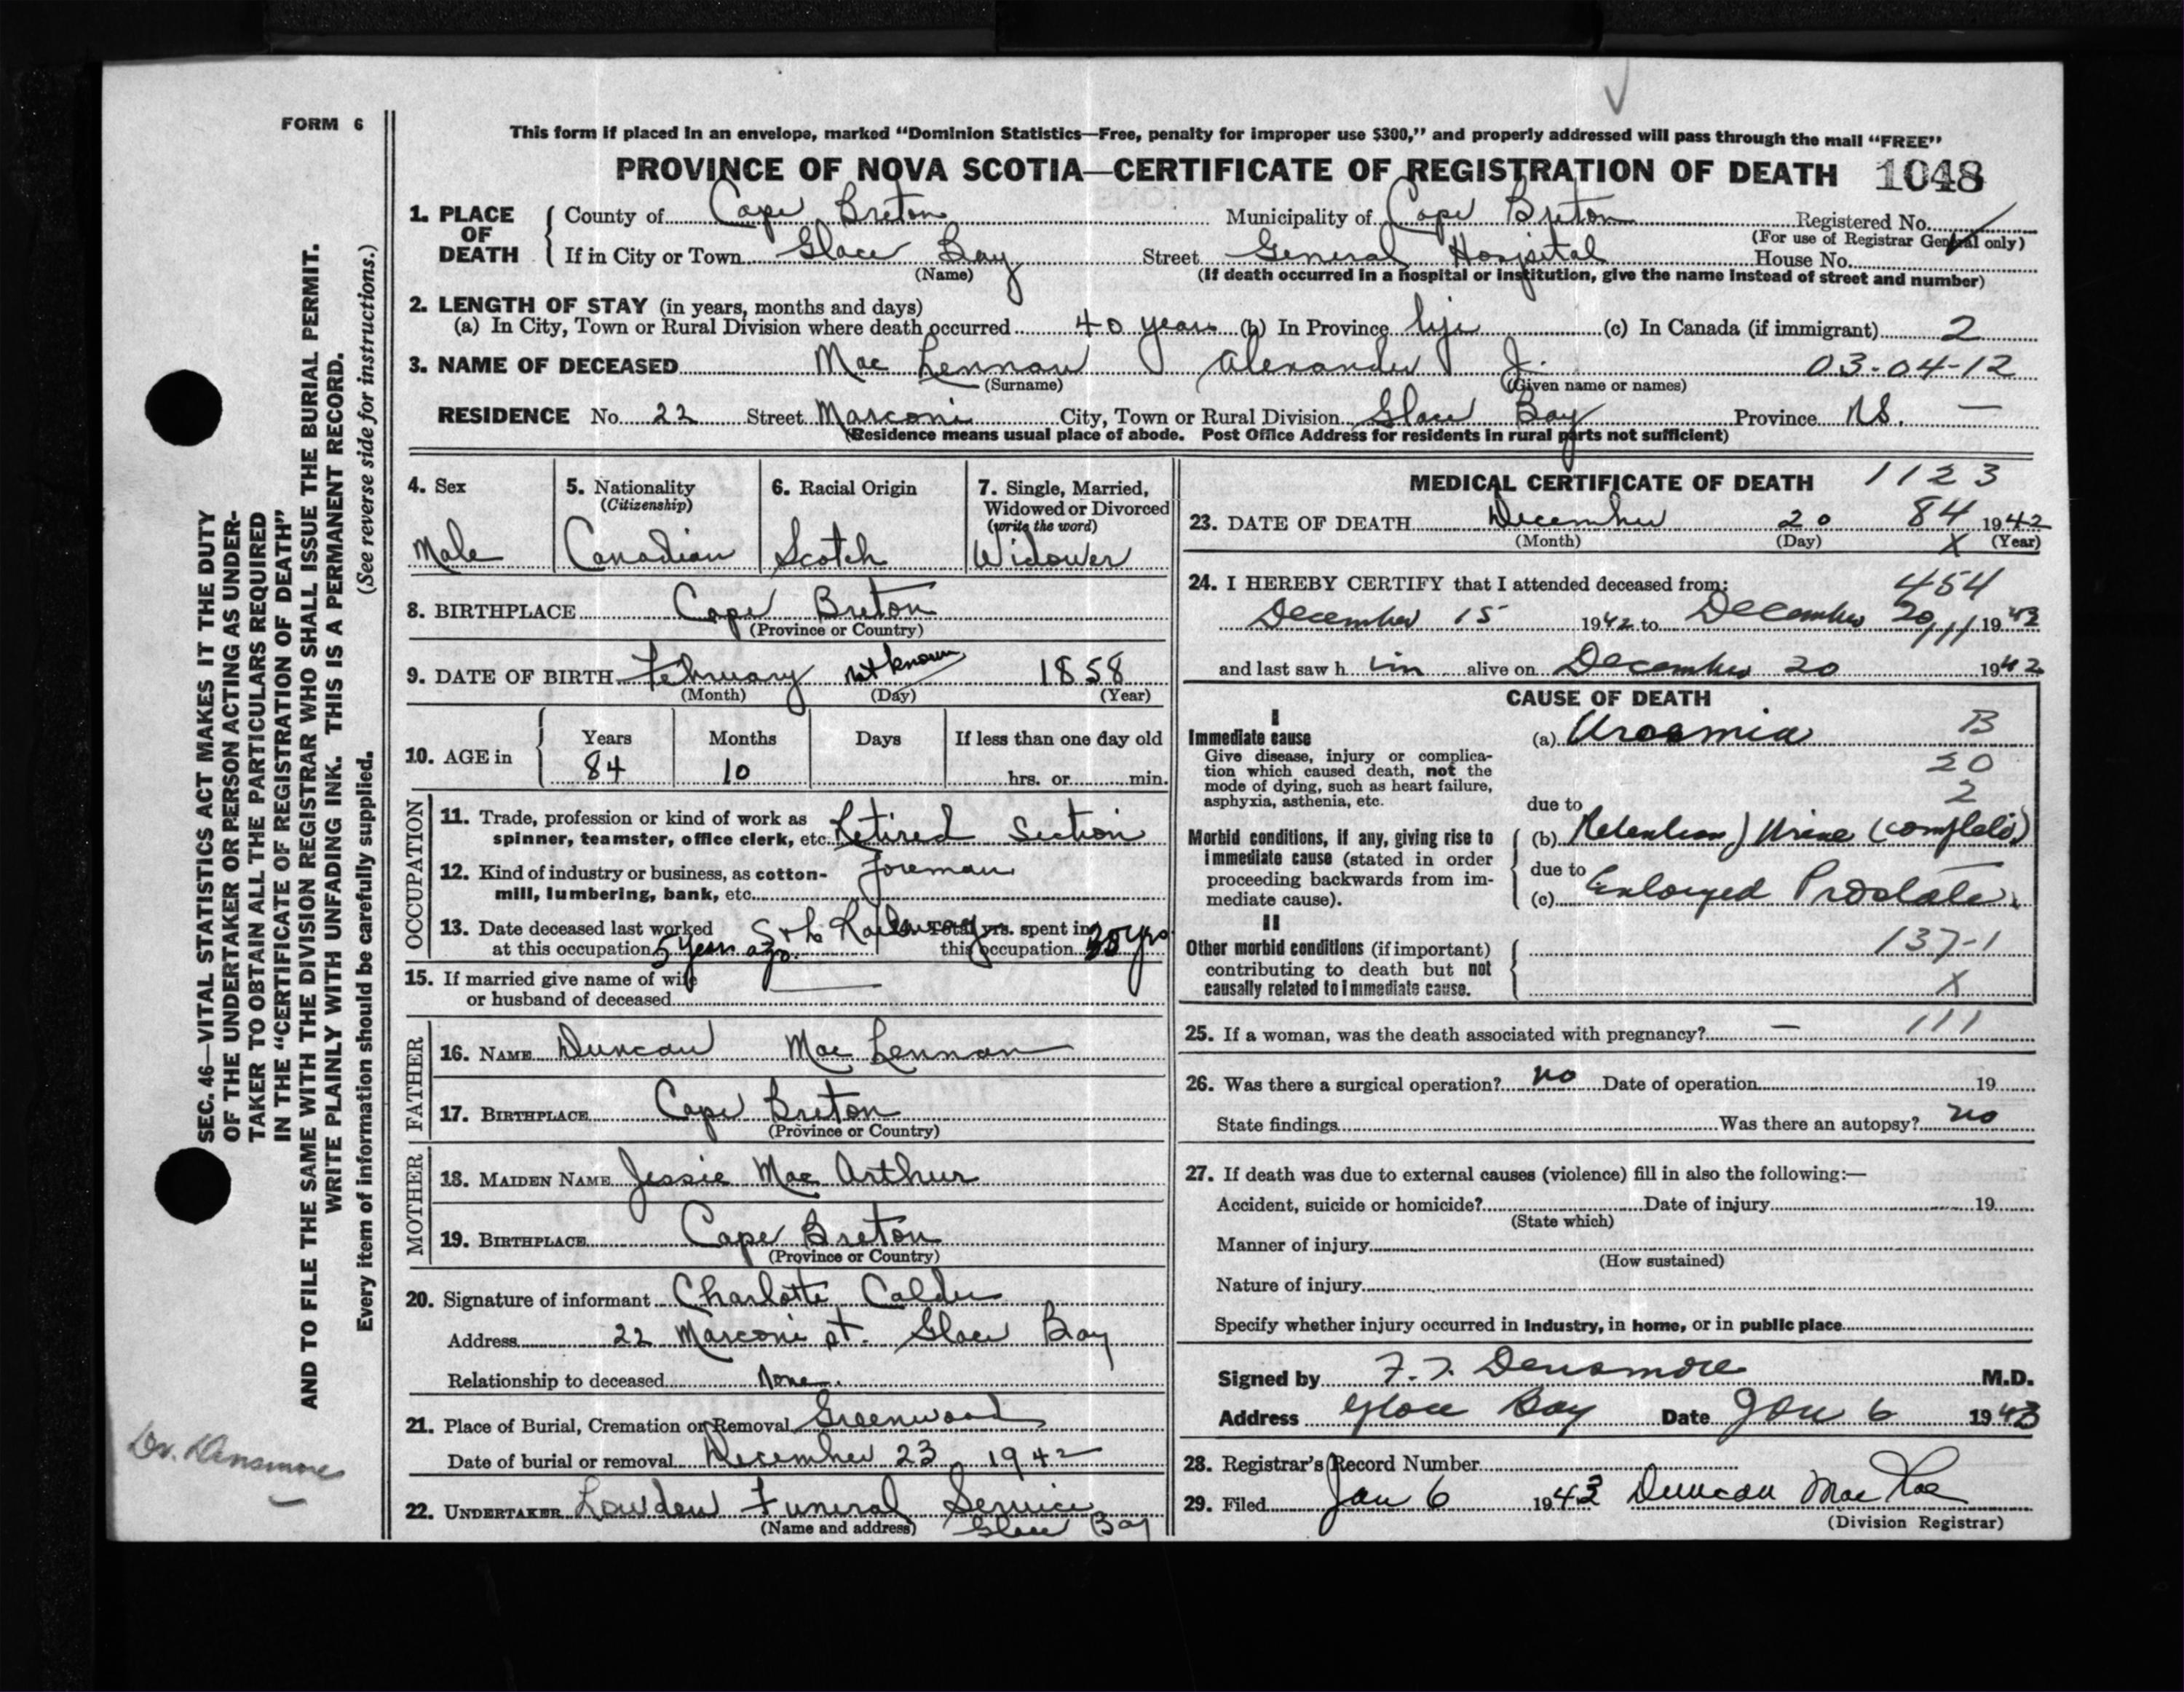 FORM 6
This form if placed in an envelope, marked "Dominion Statistics—Free, penalty for improper use $300," and properly addressed will pass through the mail "FREE"
PROVINCE OF NOVA SCOTIA—CERTIFICATE OF REGISTRATION OF DEATH 1048
1. PLACE OF DEATH
County of Cape Breton Municipality of Cape Breton Registered No.
(For use of Registrar General only)
If in City or Town Glace Bay Street General Hospital House No.
(Name) (If death occurred in a hospital or institution, give the name instead of street and number)
2. LENGTH OF STAY (in years, months and days)
(a) In City, Town or Rural Division where death occurred 40 years (b) In Province life (c) In Canada (if immigrant) 2
3. NAME OF DECEASED Mac Lennan Alexander J. 03-04-12
(Surname) (Given name or names)
RESIDENCE No. 22 Street Marconi City, Town or Rural Division Glace Bay Province N.S. —
(Residence means usual place of abode. Post Office Address for residents in rural parts not sufficient)
4. Sex Male
5. Nationality
(Citizenship)
Canadian
6. Racial Origin
Scotch
7. Single, Married,
Widowed or Divorced
(write the word)
Widower
8. BIRTHPLACE Cape Breton
(Province or Country)
9. DATE OF BIRTH February not known 1858
(Month) (Day) (Year)
10. AGE in Years Months Days If less than one day old
84 10 hrs. or min.
OCCUPATION
11. Trade, profession or kind of work as
spinner, teamster, office clerk, etc. Retired Section
12. Kind of industry or business, as cotton- Foreman
mill, lumbering, bank, etc.
13. Date deceased last worked S & L Railway Total yrs. spent in
at this occupation 5 years ago. this occupation yrs
15. If married give name of wife
or husband of deceased
FATHER
16. NAME Duncan Mac Lennan
17. BIRTHPLACE Cape Breton
(Province or Country)
MOTHER
18. MAIDEN NAME Jessie Mac Arthur
19. BIRTHPLACE Cape Breton
(Province or Country)
20. Signature of informant Charlotte Calder
Address 22 Marconi st. Glace Bay
Relationship to deceased None.
21. Place of Burial, Cremation or Removal Greenwood
Date of burial or removal December 23, 1942
22. UNDERTAKER Lowden Funeral Service
(Name and address) Glace Bay
MEDICAL CERTIFICATE OF DEATH 1123
23. DATE OF DEATH December 20 84 1942
(Month) (Day) X (Year)
24. I HEREBY CERTIFY that I attended deceased from: 454
December 15 1942 to December 20 111 19
and last saw h im alive on December 20 1942
CAUSE OF DEATH
I
Immediate cause (a) Uraemia B
Give disease, injury or complica-
tion which caused death, not the 20
mode of dying, such as heart failure, 2
asphyxia, asthenia, etc. due to
Morbid conditions, if any, giving rise to (b) Retention of Urine (complete)
immediate cause (stated in order
proceeding backwards from im- due to
mediate cause). (c) Enlarged Prostate.
II
Other morbid conditions (if important) 137-1
contributing to death but not
causally related to immediate cause. X
25. If a woman, was the death associated with pregnancy? — 111
26. Was there a surgical operation? no Date of operation 19
State findings Was there an autopsy? no
27. If death was due to external causes (violence) fill in also the following:—
Accident, suicide or homicide? Date of injury 19
(State which)
Manner of injury
(How sustained)
Nature of injury
Specify whether injury occurred in industry, in home, or in public place
Signed by F. T. Densmore M.D.
Address Glace Bay Date Jan 6 1943
28. Registrar's Record Number
29. Filed Jan 6 1943 Duncan Mac Rae
(Division Registrar)
SEC. 46—VITAL STATISTICS ACT MAKES IT THE DUTY
OF THE UNDERTAKER OR PERSON ACTING AS UNDER-
TAKER TO OBTAIN ALL THE PARTICULARS REQUIRED
IN THE "CERTIFICATE OF REGISTRATION OF DEATH"
AND TO FILE THE SAME WITH THE DIVISION REGISTRAR WHO SHALL ISSUE THE BURIAL PERMIT.
WRITE PLAINLY WITH UNFADING INK. THIS IS A PERMANENT RECORD.
Every item of information should be carefully supplied. (See reverse side for instructions.)
Dr. Densmore